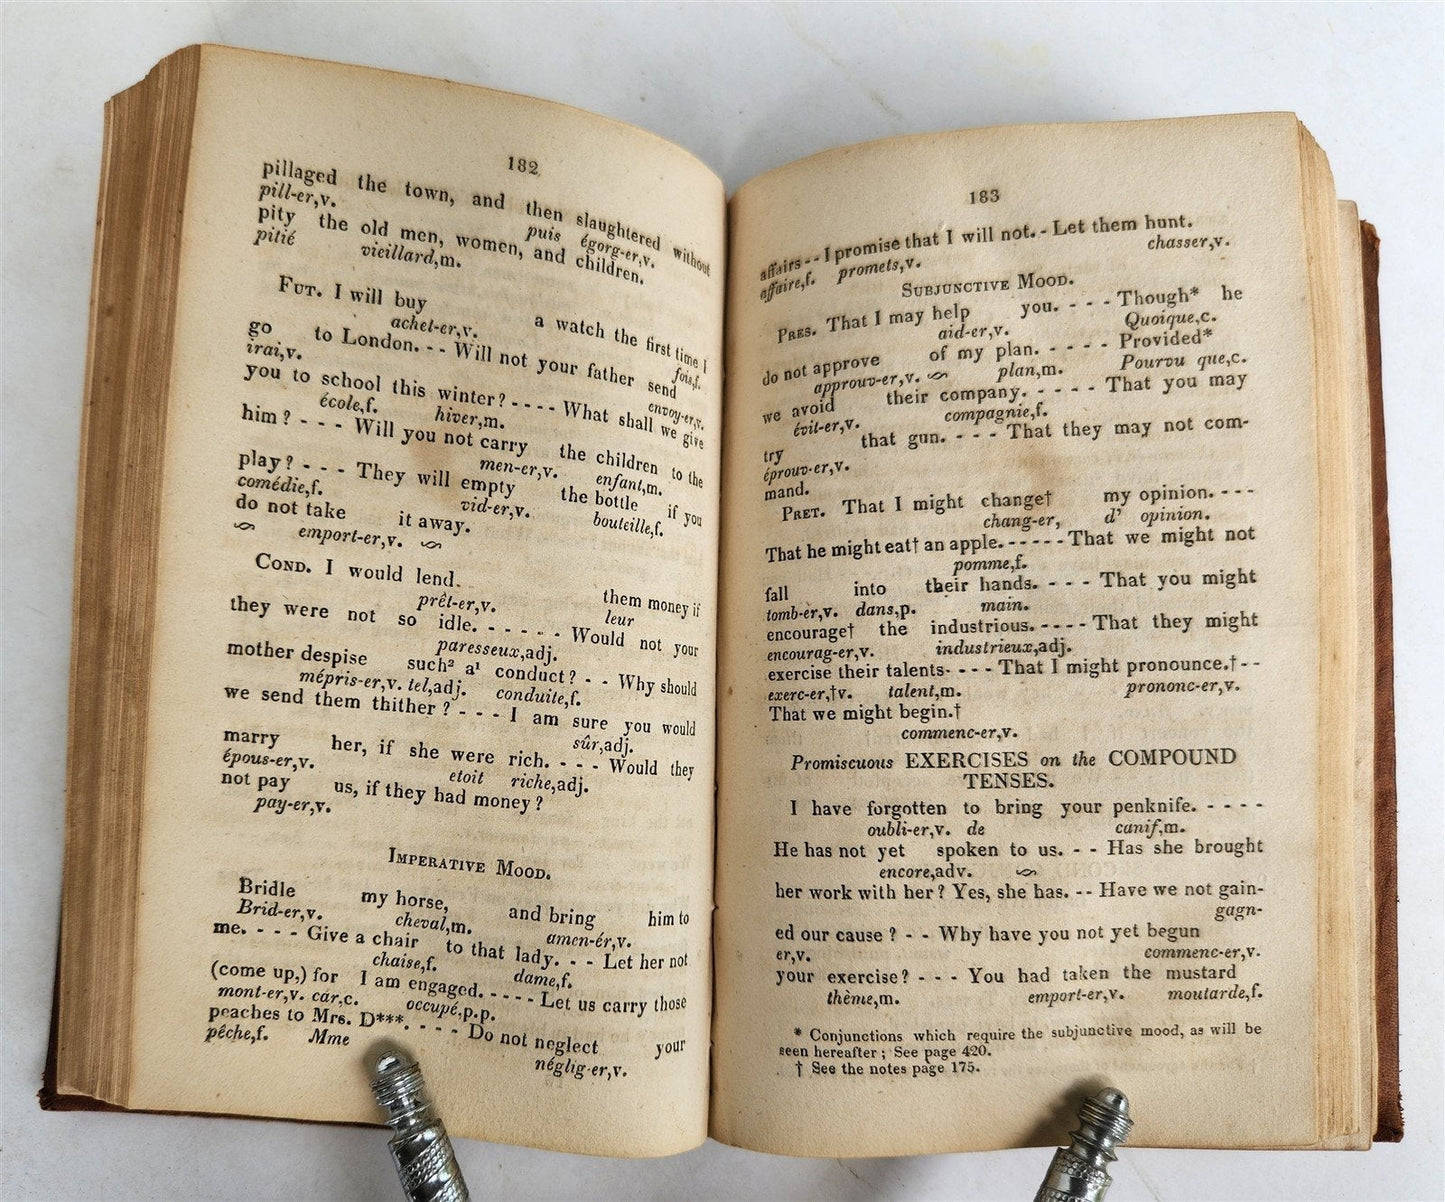 182
pillaged the town, and then slaughtered without
pill-er,v. puis égorg-er,v.
pity the old men, women, and children.
pitié vieillard,m.
Fut. I will buy a watch the first time I
achet-er,v. fois,f.
go to London. - - Will not your father send
irai,v. envoy-er,v.
you to school this winter? - - - - What shall we give
école,f. hiver,m.
him? - - - Will you not carry the children to the
men-er,v. enfant,m.
play? - - - They will empty the bottle if you
comédie,f. vid-er,v. bouteille,f.
do not take it away.
emport-er,v.
Cond. I would lend. them money if
prêt-er,v. leur
they were not so idle. - - - - - Would not your
paresseux,adj.
mother despise such² a¹ conduct? - - Why should
mépris-er,v. tel,adj. conduite,f.
we send them thither? - - - I am sure you would
sûr,adj.
marry her, if she were rich. - - - Would they
épous-er,v. etoit riche,adj.
not pay us, if they had money?
pay-er,v.
Imperative Mood.
Bridle my horse, and bring him to
Brid-er,v. cheval,m. amen-ér,v.
me. - - - Give a chair to that lady. - - Let her not
chaise,f. dame,f.
(come up,) for I am engaged. - - - - Let us carry those
mont-er,v. car,c. occupé,p.p.
peaches to Mrs. D***. - - - Do not neglect your
pêche,f. Mme néglig-er,v.
183
affairs - - I promise that I will not. - Let them hunt.
affaire,f. promets,v. chasser,v.
Subjunctive Mood.
Pres. That I may help you. - - - Though* he
aid-er,v. Quoique,c.
do not approve of my plan. - - - - Provided*
approuv-er,v. plan,m. Pourvu que,c.
we avoid their company. - - - - That you may
évit-er,v. compagnie,f.
try that gun. - - - That they may not com-
éprouv-er,v.
mand.
Pret. That I might change† my opinion. - - -
chang-er, d' opinion.
That he might eat† an apple. - - - - - That we might not
pomme,f.
fall into their hands. - - - That you might
tomb-er,v. dans,p. main.
encourage† the industrious. - - - - That they might
encourag-er,v. industrieux,adj.
exercise their talents- - - - That I might pronounce.† - -
exerc-er,†v. talent,m. prononc-er,v.
That we might begin.†
commenc-er,v.
Promiscuous EXERCISES on the COMPOUND
TENSES.
I have forgotten to bring your penknife. - - - -
oubli-er,v. de canif,m.
He has not yet spoken to us. - - Has she brought
encore,adv.
her work with her? Yes, she has. -- Have we not gain-
gagn-
ed our cause? - - Why have you not yet begun
er,v. commenc-er,v.
your exercise? - - - You had taken the mustard
thème,m. emport-er,v. moutarde,f.
* Conjunctions which require the subjunctive mood, as will be
seen hereafter; See page 420.
† See the notes page 175.